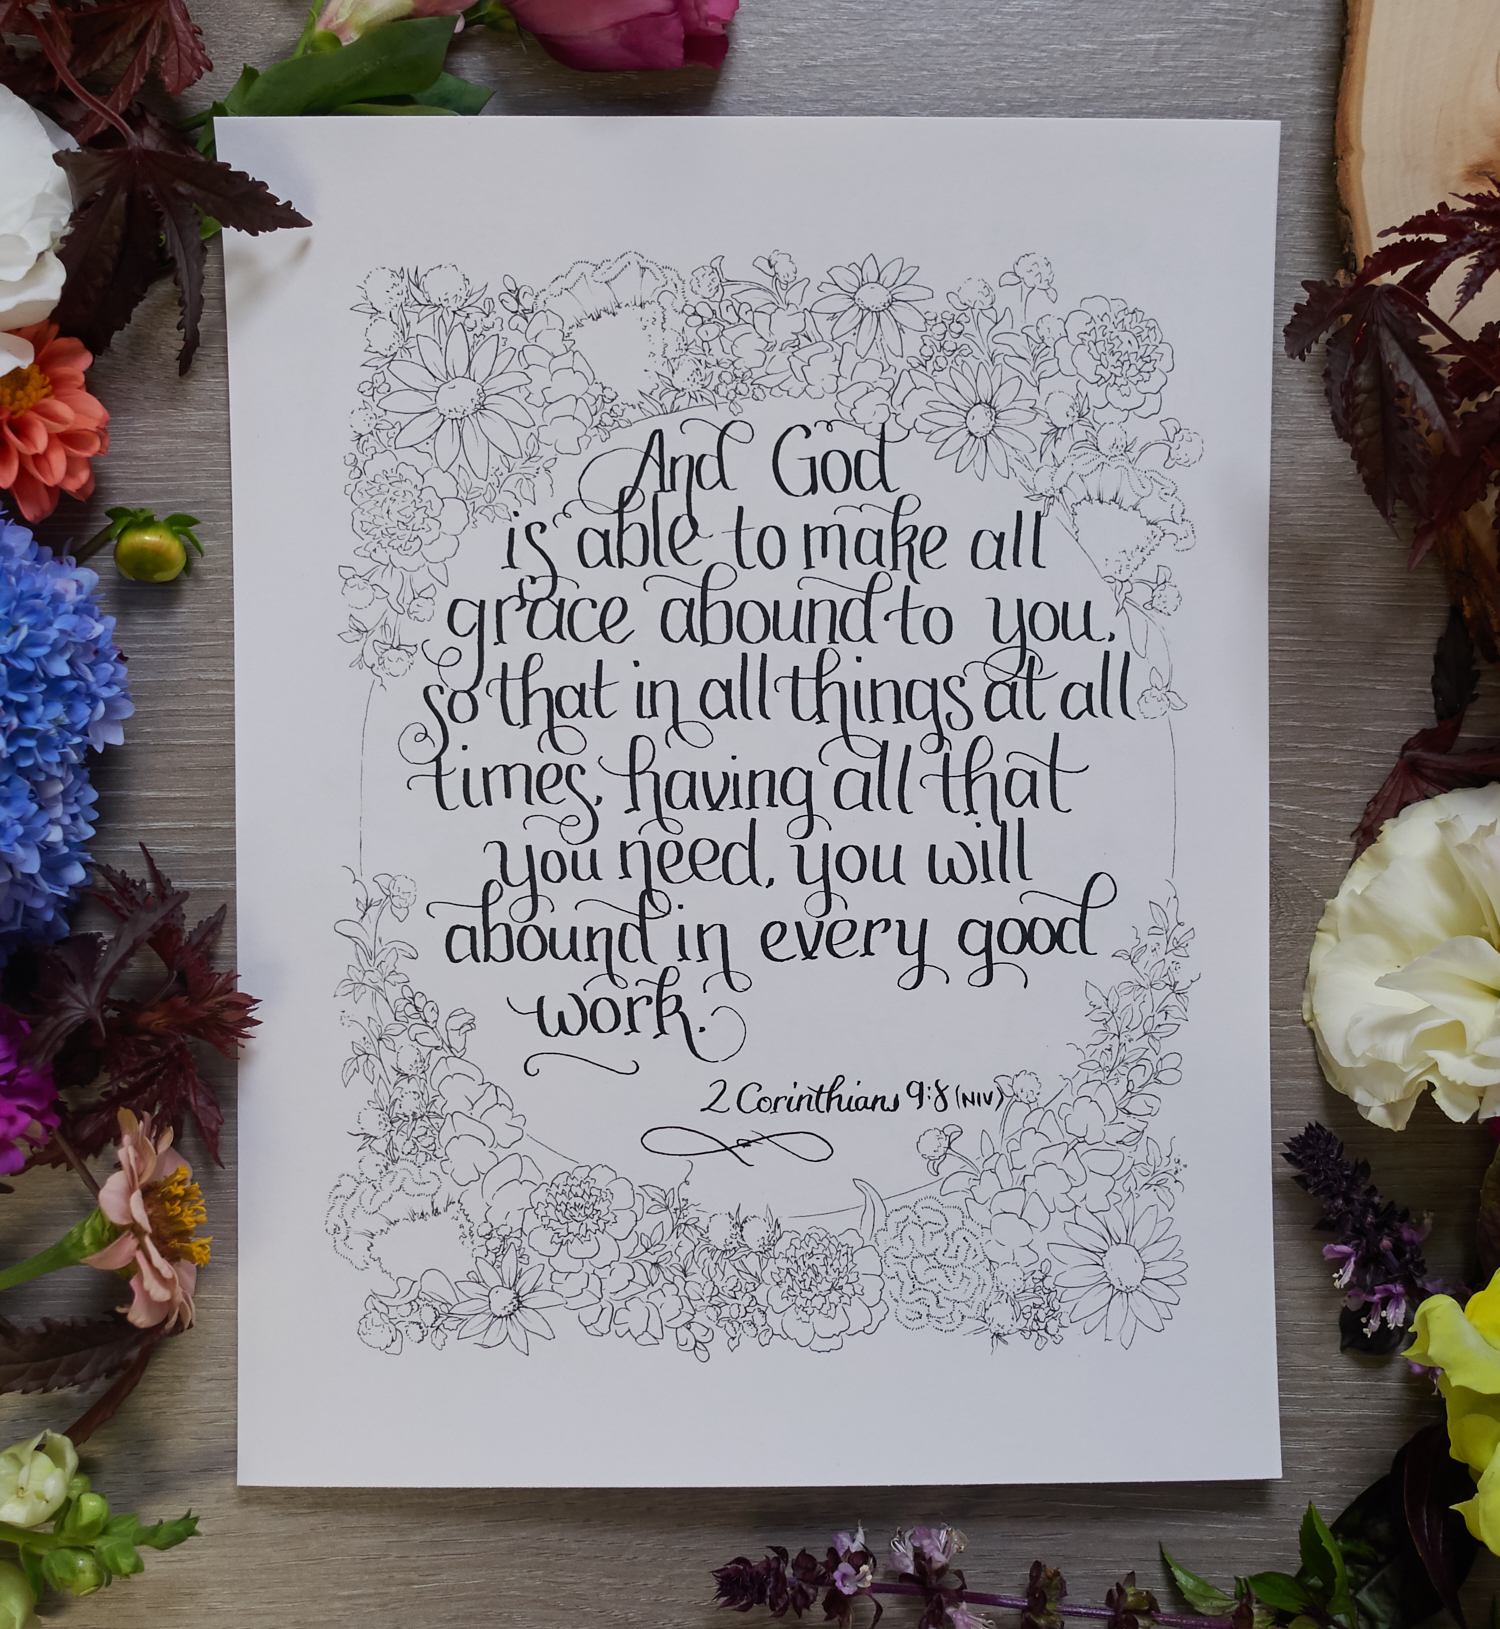 And God
is able to make all
grace abound to you,
so that in all things at all
times, having all that
you need, you will
abound in every good
work.
2 Corinthians 9:8 (NIV)